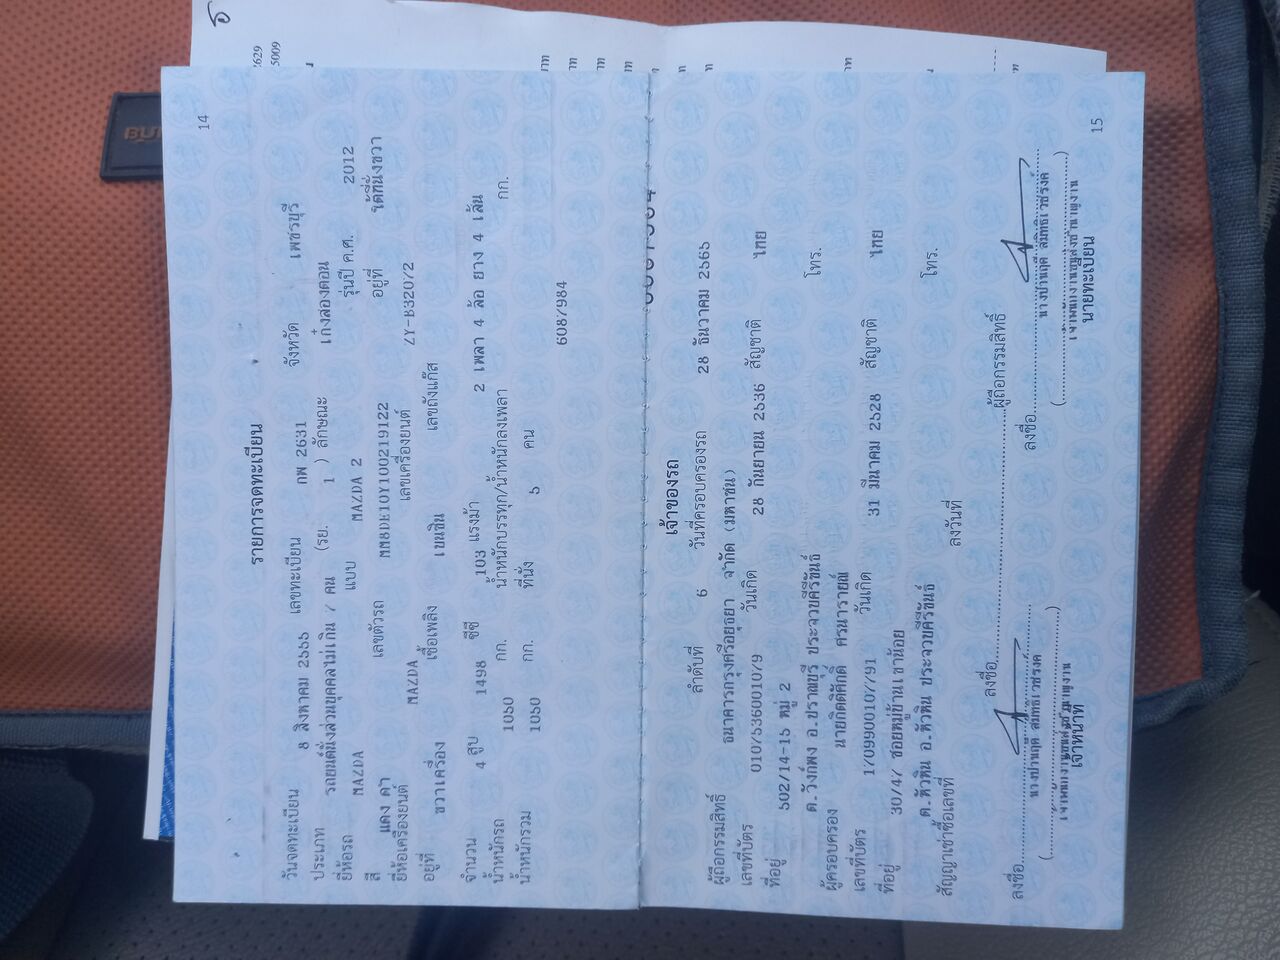 14
รายการจดทะเบียน
วันจดทะเบียน 8 สิงหาคม 2555 เลขทะเบียน กพ 2631 จังหวัด เพชรบุรี
ประเภท รถยนต์นั่งส่วนบุคคลไม่เกิน 7 คน (รย. 1 ) ลักษณะ เก๋งสองตอน
ยี่ห้อรถ MAZDA แบบ MAZDA 2 รุ่นปี ค.ศ. 2012
สี แดง ดำ เลขตัวรถ MM8DE10Y100219122 อยู่ที่ ใต้ที่นั่งขวา
ยี่ห้อเครื่องยนต์ MAZDA เลขเครื่องยนต์ ZY-B32072
อยู่ที่ ขวาเครื่อง เชื้อเพลิง เบนซิน เลขถังแก๊ส
จำนวน 4 สูบ 1498 ซีซี 103 แรงม้า 2 เพลา 4 ล้อ ยาง 4 เส้น
น้ำหนักรถ 1050 กก. น้ำหนักบรรทุก/น้ำหนักลงเพลา กก.
น้ำหนักรวม 1050 กก. ที่นั่ง 5 คน
6087984
เจ้าของรถ
ลำดับที่ 6 วันที่ครอบครองรถ 28 ธันวาคม 2565
ผู้ถือกรรมสิทธิ์ ธนาคารกรุงศรีอยุธยา จำกัด (มหาชน)
เลขที่บัตร 0107536001079 วันเกิด 28 กันยายน 2536 สัญชาติ ไทย
ที่อยู่ 502/14-15 หมู่ 2
ต.วังก์พง อ.ปราณบุรี ประจวบคีรีขันธ์ โทร.
ผู้ครอบครอง นายกิตติศักดิ์ ศรนารายณ์
เลขที่บัตร 1709900107791 วันเกิด 31 มีนาคม 2528 สัญชาติ ไทย
ที่อยู่ 30/47 ซอยหมู่บ้านเขาน้อย
ต.หัวหิน อ.หัวหิน ประจวบคีรีขันธ์ โทร.
สัญญาเช่าซื้อเลขที่ ลงวันที่
ลงชื่อ ผู้ถือกรรมสิทธิ์
ลงชื่อ ลงชื่อ
เจ้าหน้าที่ นายทะเบียน
15